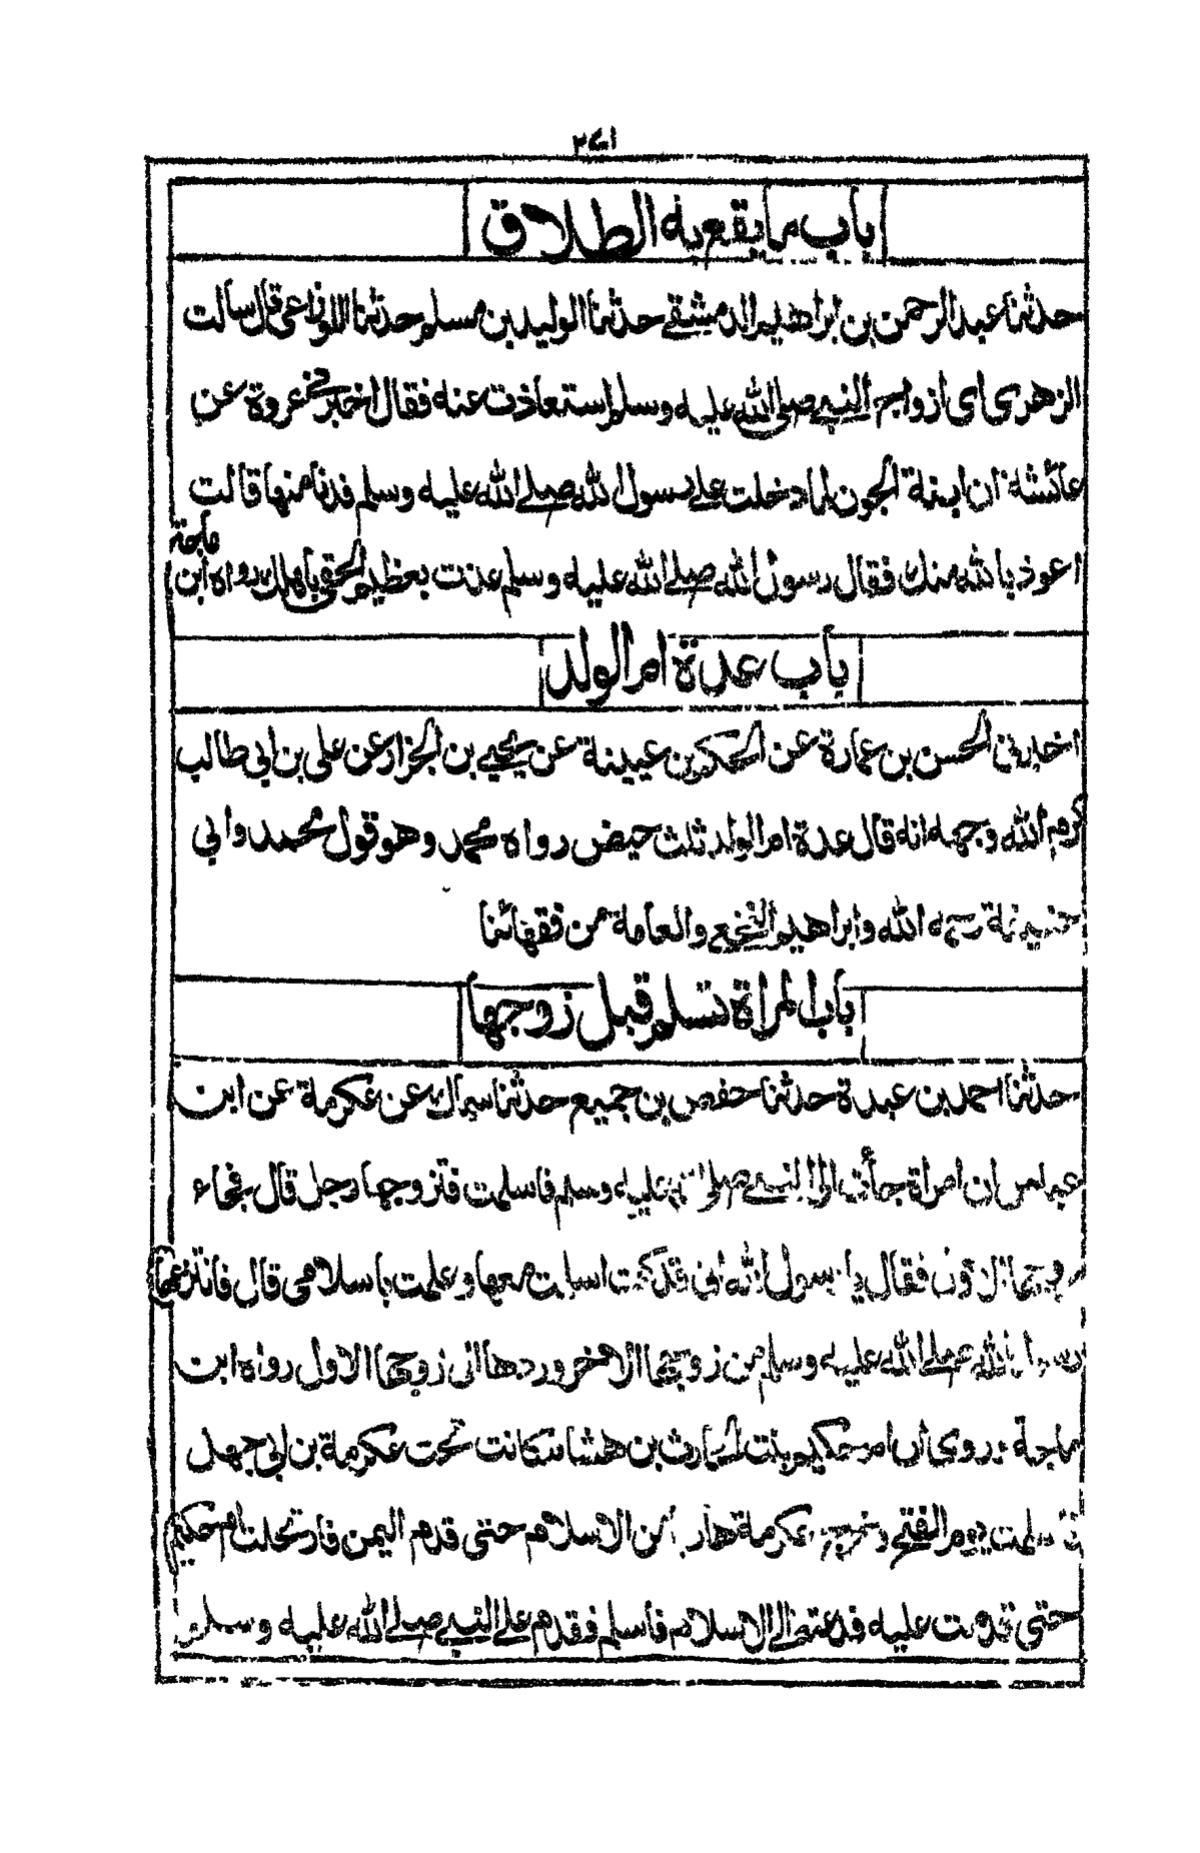 ٣٧١
باب ما يقع به الطلاق
حدثنا عبد الرحمن بن ابراهيم الدمشقي حدثنا الوليد بن مسلم حدثنا الاوزاعي قال سالت
الزهري اي ازواج النبي صلى الله عليه وسلم استعاذت عنه فقال اخبرني عروة عن
عائشة ان ابنة الجون لما دخلت على رسول الله صلى الله عليه وسلم فدنا منها قالت
اعوذ بالله منك فقال رسول الله صلى الله عليه وسلم عذت بعظيم الحقي باهلك رواه ابن ماجة
باب عدة ام الولد
اخبرني الحسن بن عمارة عن الحكم بن عيينة عن يحيى بن الجزار عن علي بن ابي طالب
كرم الله وجهه انه قال عدة ام الولد ثلث حيض رواه محمد وهو قول محمد وابي
حنيفة رحمه الله وابراهيم النخعي والعامة من فقهائنا
باب المراة تسلم قبل زوجها
حدثنا احمد بن عبدة حدثنا حفص بن جميع حدثنا سماك عن عكرمة عن ابن
عباس ان امراة جاءت الى النبي صلى الله عليه وسلم فاسلمت فتزوجها رجل قال فجاء
زوجها الاول فقال يا رسول الله اني قد كنت اسلمت معها وعلمت باسلامي قال فانتزعها
رسول الله صلى الله عليه وسلم من زوجها الاخر وردها الى زوجها الاول رواه ابن
ماجة وروي ان ام حكيم بنت الحارث بن هشام كانت تحت عكرمة بن ابي جهل
اسلمت يوم الفتح وخرج عكرمة هاربا من الاسلام حتى قدم اليمن فارتحلت ام حكيم
حتى قدمت عليه فدعته الى الاسلام فاسلم فقدم على النبي صلى الله عليه وسلم